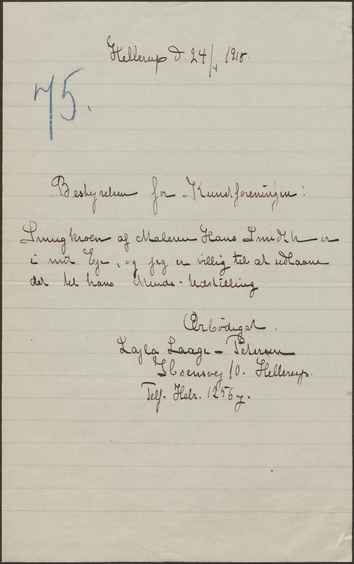 Hellerup d. 24/4 1918.
75.
Bestyrelsen for Kunstforeningen:
Smugkroen af Maleren Hans Smidth er
i mit Eje, og jeg er villig til at udlaane
det til hans Minde-Udstilling
Ærbødigst
Layla Laage-Petersen
Ibsensvej 10. Hellerup.
Telf. Helr. 1256y.